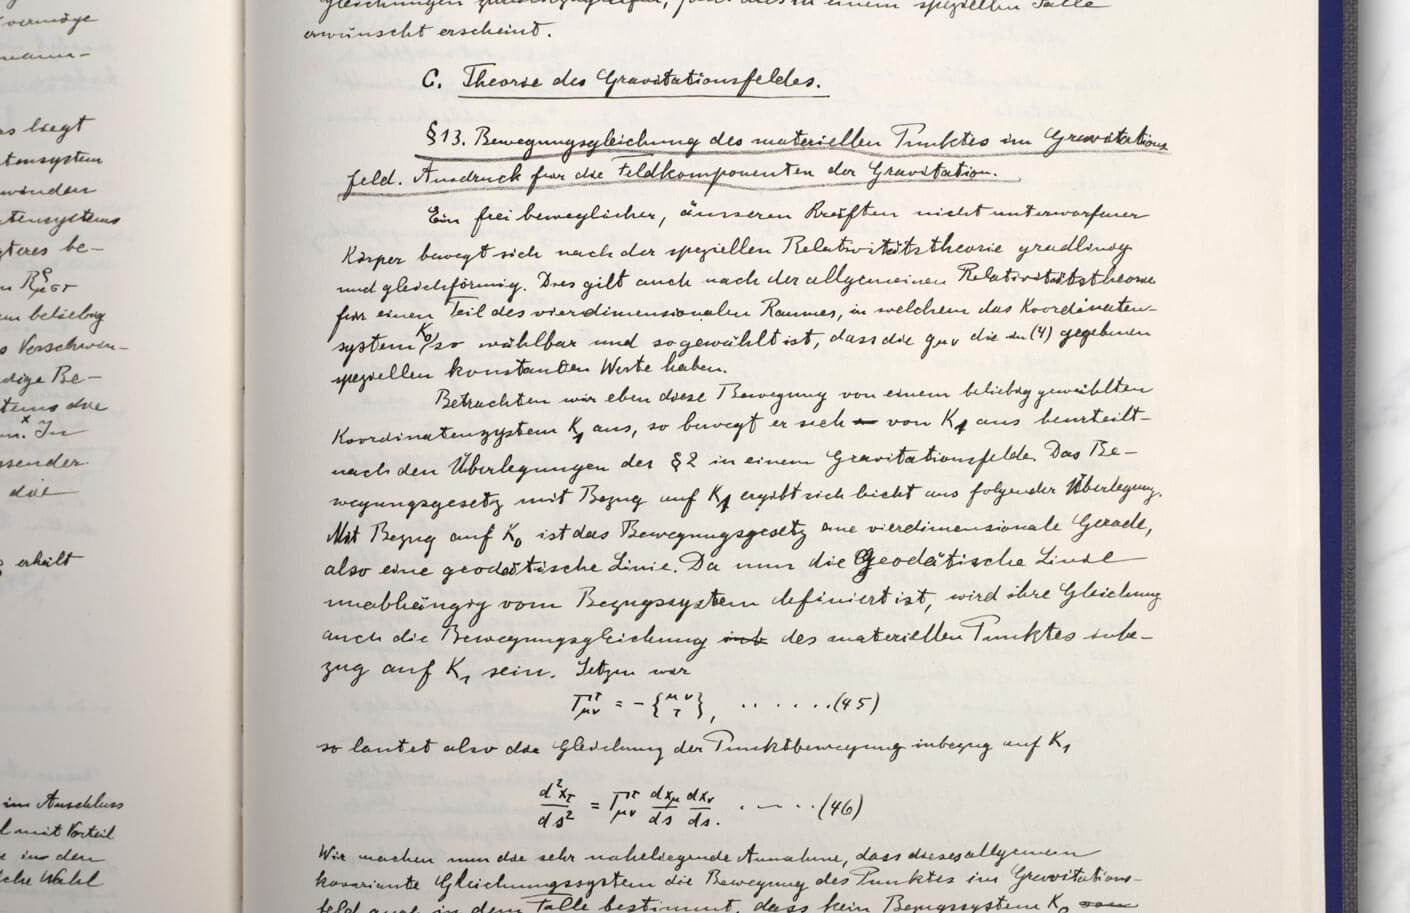 vermöge
erwünscht erscheint.
C. Theorie des Gravitationsfeldes.
§13. Bewegungsgleichung des materiellen Punktes im Gravitations
feld. Ausdruck für die Feldkomponenten der Gravitation.
Ein frei beweglicher, äusseren Kräften nicht unterworfener
Körper bewegt sich nach der speziellen Relativitätstheorie gradlinig
und gleichförmig. Dies gilt auch nach der allgemeinen Relativitätstheorie
für einen Teil des vierdimensionalen Raumes, in welchem das Koordinaten-
system K0 so wählbar und so gewählt ist, dass die gμν die in (4) gegebenen
speziellen konstanten Werte haben.
Betrachten wir eben diese Bewegung von einem beliebig gewählten
Koordinatensystem K1 aus, so bewegt er sich von K1 aus beurteilt
nach den Überlegungen des §2 in einem Gravitationsfelde. Das Be-
wegungsgesetz mit Bezug auf K1 ergibt sich leicht aus folgender Überlegung.
Mit Bezug auf K0 ist das Bewegungsgesetz eine vierdimensionale Gerade,
also eine geodätische Linie. Da nun die Geodätische Linie
unabhängig vom Bezugssystem definiert ist, wird ihre Gleichung
auch die Bewegungsgleichung des materiellen Punktes inbe-
zug auf K1 sein. Setzen wir
Γ^τ_μν = − {μν τ}, . . . . . . (45)
so lautet also die Gleichung der Punktbewegung inbezug auf K1
d²xτ/ds² = Γ^τ_μν dxμ/ds dxν/ds . . . . (46)
Wir machen nun die sehr naheliegende Annahme, dass dieses allgemein
kovariante Gleichungssystem die Bewegung des Punktes im Gravitations-
feld auch in dem Falle bestimmt, dass kein Bezugssystem K0
liegt
tensystem
winden
tensystems
be-
R^ρ_μστ
beliebig
Verschwin-
dige Be-
tems die
In
ssender
die
erhält
im Anschluss
mit Vorteil
in den
Wahl